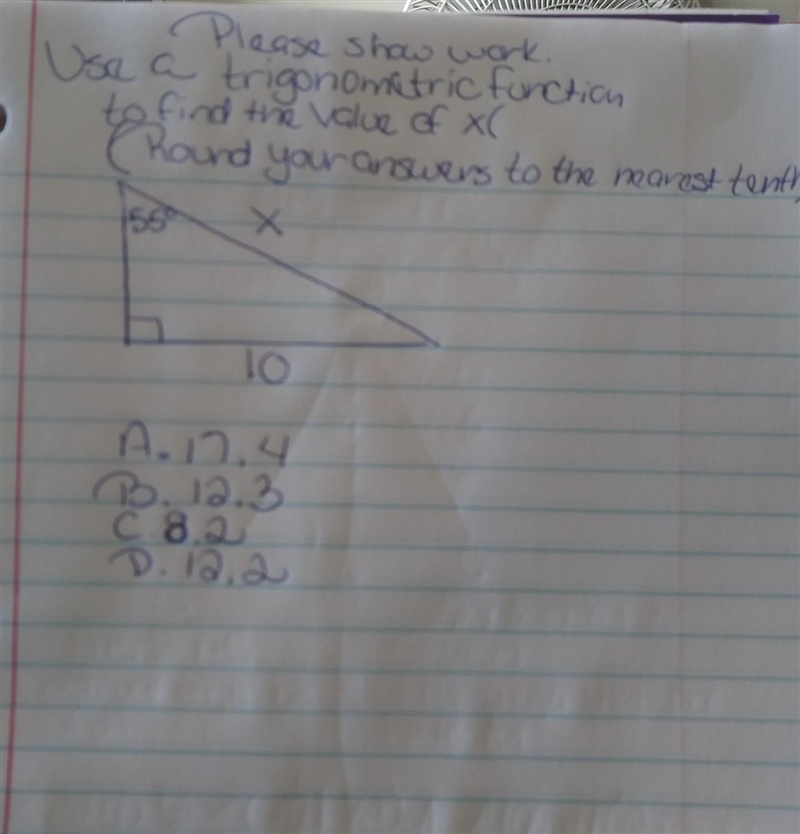 Please show work.
Use a trigonometric function
to find the value of x(
(Round your answers to the nearest tenth)
55° x
10
A. 17.4
B. 12.3
C 8.2
D. 12.2